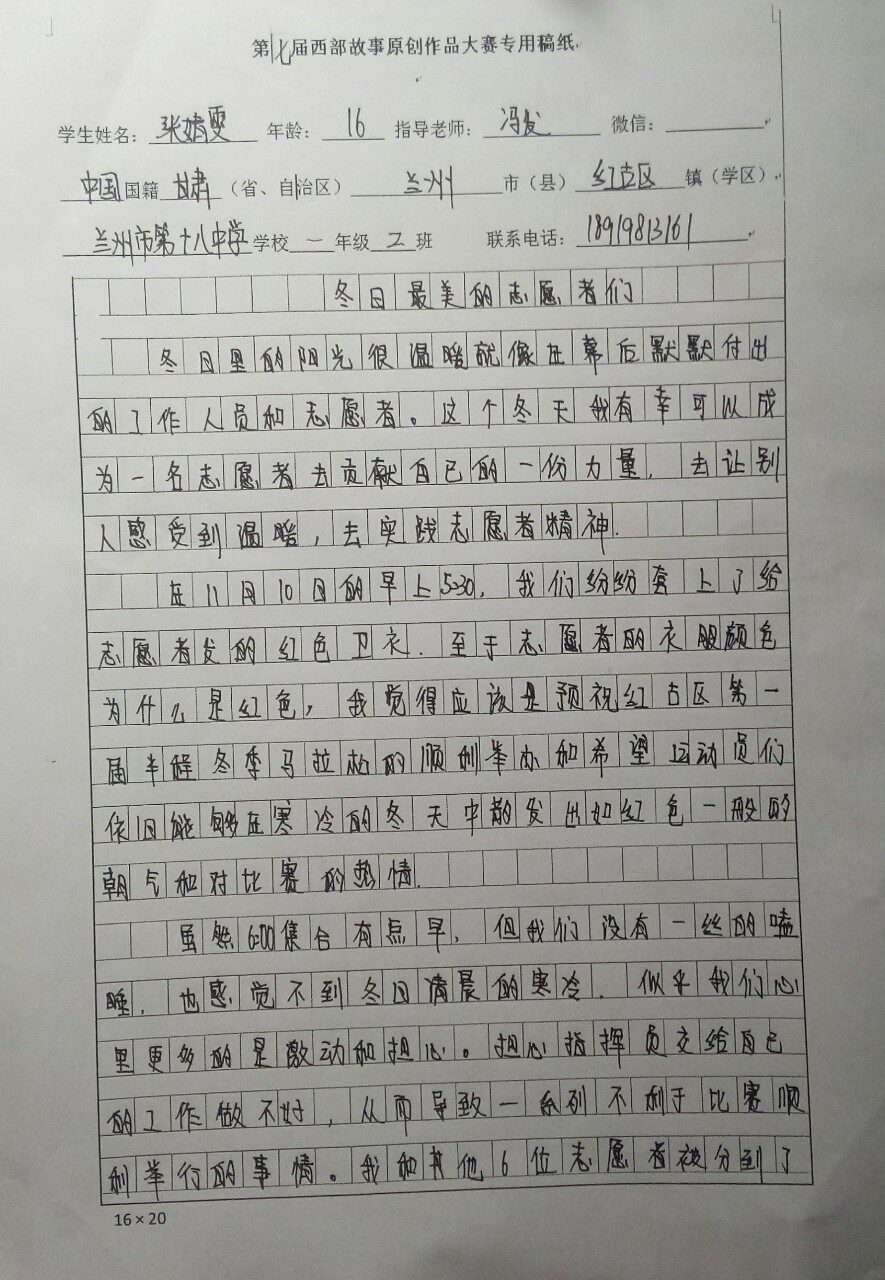 第七届西部故事原创作品大赛专用稿纸
学生姓名：张婧雯 年龄：16 指导老师：冯发 微信：
中国国籍 甘肃（省、自治区） 兰州 市（县） 红古区 镇（学区）
兰州市第十八中学学校 一 年级 2 班 联系电话：18919813161
冬日最美的志愿者们
冬日里的阳光很温暖就像在幕后默默付出
的工作人员和志愿者。这个冬天我有幸可以成
为一名志愿者去贡献自己的一份力量，去让别
人感受到温暖，去实践志愿者精神.
在11月10日的早上5:30，我们纷纷套上了给
志愿者发的红色卫衣.至于志愿者的衣服颜色
为什么是红色，我觉得应该是预祝红古区第一
届半程冬季马拉松的顺利举办和希望运动员们
依旧能够在寒冷的冬天中散发出如红色一般的
朝气和对比赛的热情.
虽然6:00集合有点早，但我们没有一丝的瞌
睡，也感觉不到冬日清晨的寒冷.似乎我们心
里更多的是激动和担心。担心指挥员交给自己
的工作做不好，从而导致一系列不利于比赛顺
利举行的事情。我和其他6位志愿者被分到了
16×20